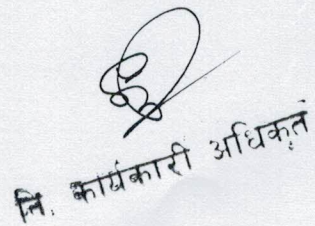 नि. कार्यकारी अधिकृत